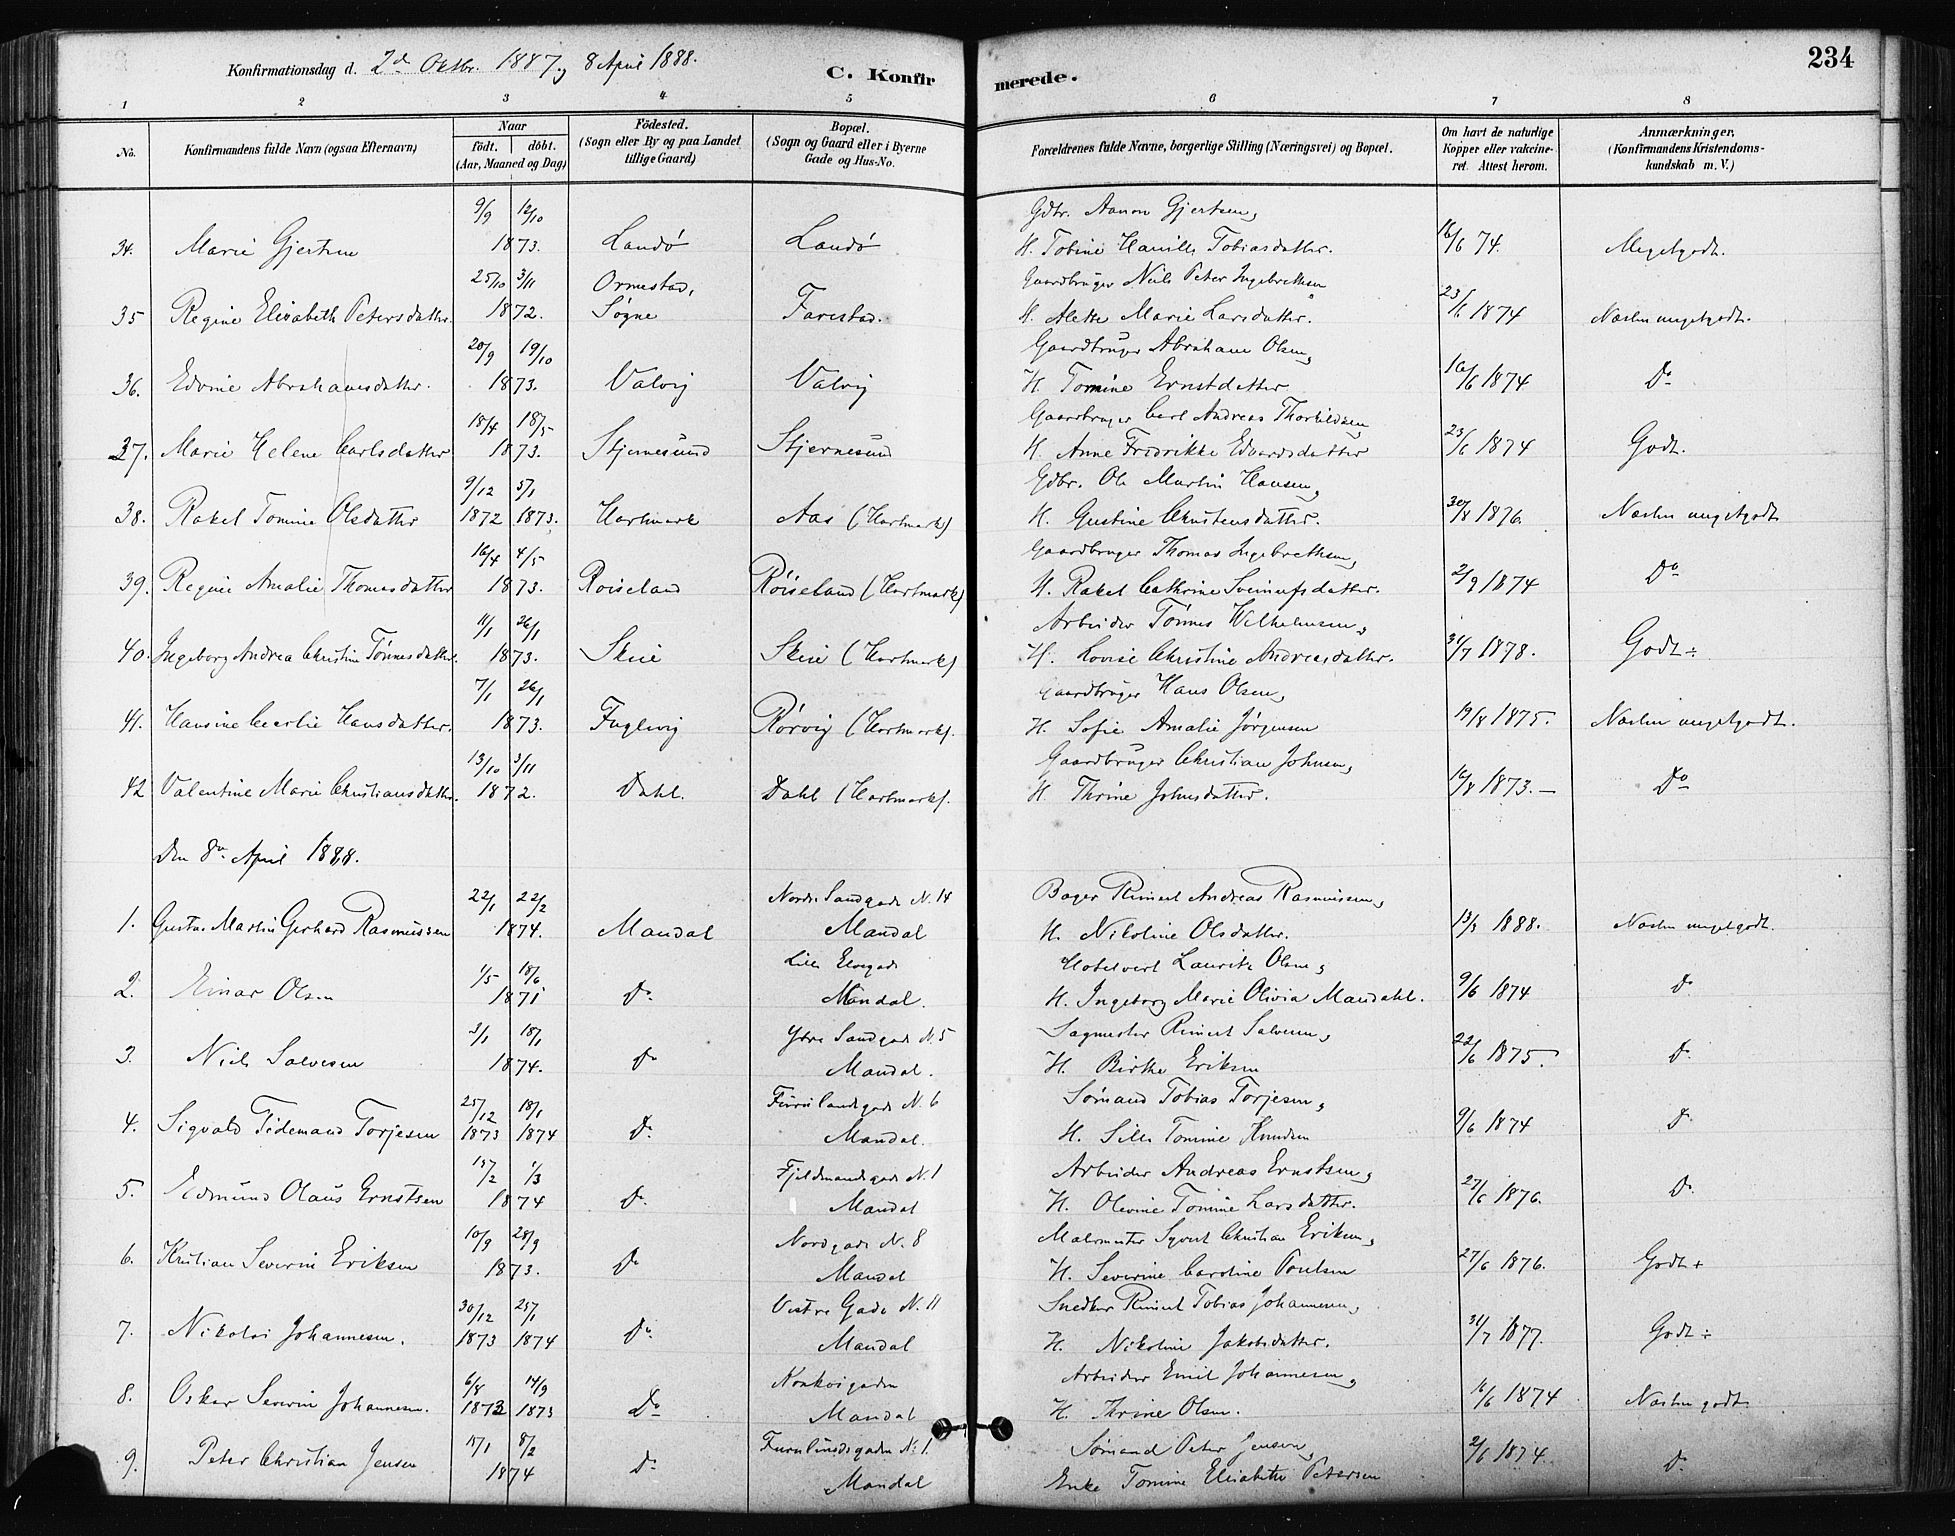 234
Konfirmationsdag d. 2d Oktbr. 1887 og 8 April 1888.
C. Konfirmerede.
1 2 3 4 5 6 7 8
No.
Konfirmandens fulde Navn (ogsaa Efternavn)
Naar
født. døbt.
(Aar, Maaned og Dag)
Födested.
(Sogn eller By og paa Landet
tillige Gaard)
Bopæl.
(Sogn og Gaard eller i Byerne
Gade og Hus-No.
Forældrenes fulde Navne, borgerlige Stilling (Næringsvei) og Bopæl.
Om havt de naturlige
Kopper eller vakcine-
ret. Attest herom.
Anmærkninger,
(Konfirmandens Kristendoms-
kundskab m. V.)
9/9 12/10 Gdbr. Aanon Gjertsen,
34. Marie Gjertsen 1873. Landö Landö H. Tobine Tobiasdatter. 16/6 74. Megetgodt.
25/10 3/11 Ormestad, Gaardbruger Niels Peter Ingebrethsen
35 Regine Elisabeth Petersdatter. 1872. Søgne Farestad. H. Alette Marie Larsdatter. 1874 Næsten megetgodt.
20/9 19/10 Gaardbruger Abraham Olsen,
36. Edvine Abrahamsdatter. 1873. Valvig Valvig H. Tomine Ernstdatter 16/6 1874 Do
18/4 18/5 Gaardbruger Carl Andreas Thorkildsen,
37. Marie Helene Carlsdatter 1873. Stjernesund Stjernesund H. Anne Fredrikke Edvardsdatter 23/6 1874 Godt.
9/12 5/1 Gdbr. Ole Martin Hansen,
38. Rakel Tomine Olsdatter 1872 1873. Hartmark Aas (Hartmark) H. Gustine Christensdatter. 30/8 1876. Næsten megetgodt
16/4 4/5 Gaardbruger Thomas Ingebrethsen,
39. Regine Amalie Thomasdatter 1873. Röiseland Röiseland (Hartmark) H. Rakel Cathrine Sveinufsdatter. 2/9 1874 Do
11/1 26/1 Arbeider Tönnes Wilhelmsen,
40. Ingeborg Andrea Christine Tönnesdatter. 1873. Skeie Skeie (Hartmark) H. Lovise Christine Andreasdatter. 31/7 1878. Godt ÷
7/1 26/1 Gaardbruger Hans Olsen,
41. Hansine Hansdatter. 1873. Fuglevig Rörvig (Hartmark). H. Sofie Amalie Jørgensen 19/8 1875. Næsten megetgodt.
13/10 3/11 Gaardbruger Christian Johnsen,
42 Valentine Marie Christiansdatter. 1872. Dahl. Dahl (Hartmark). H. Thrine Johnsdatter. 16/8 1873.— Do
Den 8de April 1888.
22/1 22/2 Nordre Sandgade N. 14 Bager Reinert Andreas Rasmussen,
1. Gustav Martin Gerhard Rasmussen 1874. Mandal Mandal H. Nikoline Olsdatter. 13/3 1888. Næsten megetgodt.
1/5 18/6 Lille Elvegade Hotelvert Lauritz Olsen,
2. Einar Olsen 1871 Do Mandal. H. Ingeborg Marie Olivia Mandahl. 9/6 1874 Do
3/1 18/1 Ytre Sandgade N. 5 Sagmester Reinert Salvesen,
3. Niels Salvesen 1874. Do Mandal. H. Birthe Eriksen 22/6 1875. Do
25/12 18/1 Furulundsgade N. 6 Sømand Tobias Torjesen,
4. Sigvald Tidemand Torjesen 1873 1874 Do Mandal. H. Sille Tomine Knudsen 9/6 1874 Do
15/2 1/3 Fjeldmandsgade N. 1 Arbeider Andreas Ernstsen,
5. Edmund Olaus Ernstsen 1874 Do Mandal H. Olevine Tomine Larsdatter. 27/6 1876. Do
10/9 28/9 Nordgade N. 8 Malermester Syvert Christian Eriksen,
6. Kristian Severin Eriksen 1873. Do Mandal H. Severine Caroline Poulsen 27/6 1876. Godt +
30/12 25/1 Vestre Gade N. 11 Snedker Reinert Tobias Johannesen,
7. Nikolai Johannesen. 1873 1874 Do Mandal H. Nikoline Jakobsdatter. 31/7 1877. Godt ÷
6/8 14/9 Arbeider Emil Johannesen,
8. Oskar Severin Johannesen. 1873 1873 Do Mandal H. Thrine Olsen. 16/6 1874 Næsten godt
15/1 8/2 Furulundsgaden N. 1. Sømand Peter Jensen,
9. Peter Christian Jensen 1874 Do Mandal Enke Tomine Elisabeth Petersen 2/6 1874. Do